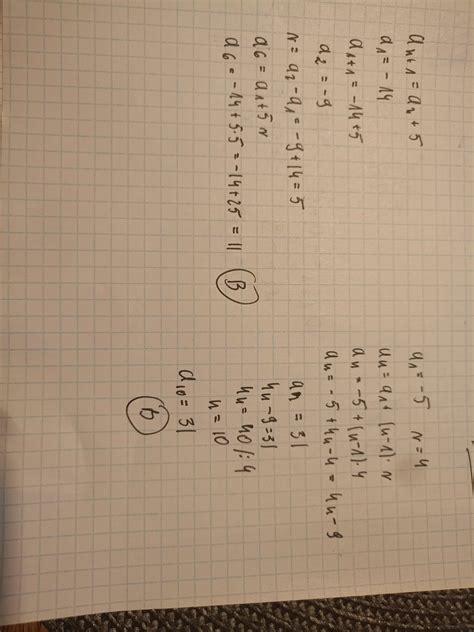 a_{n+1} = a_n + 5
a_1 = -14
a_{1+1} = -14+5
a_2 = -9
r = a_2 - a_1 = -9+14 = 5
a_6 = a_1 + 5r
a_6 = -14+5·5 = -14+25 = 11
B
a_1 = -5 r = 4
a_n = a_1 + (n-1)·r
a_n = -5 + (n-1)·4
a_n = -5 + 4n - 4 = 4n - 9
a_n = 31
4n - 9 = 31
4n = 40 /:4
n = 10
a_{10} = 31